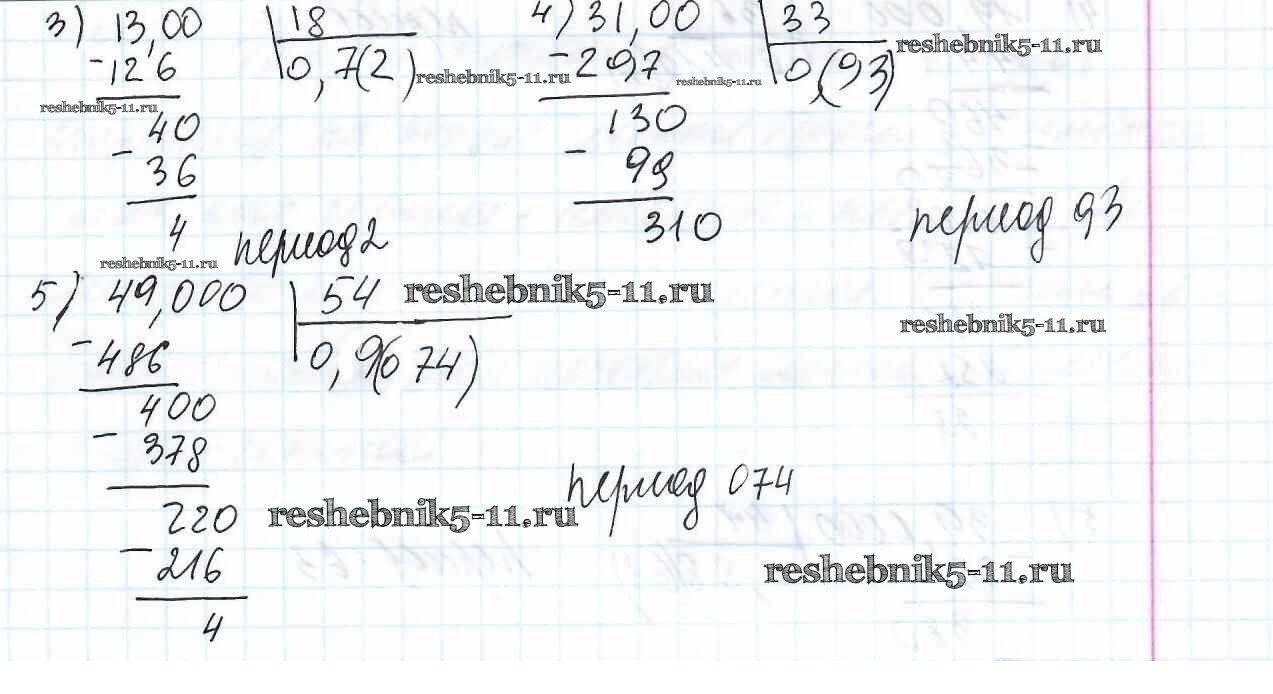 3) 13,00 18
-126 0,7(2) reshebnik5-11.ru
reshebnik5-11.ru
40
- 36
4 период 2
reshebnik5-11.ru
4) 31,00 33 reshebnik5-11.ru
-297 reshebnik5-11.ru 0,(93)
130
- 99
310 период 93
reshebnik5-11.ru
5) 49,000 54 reshebnik5-11.ru
-486 0,9(074)
400
- 378
период 074
220 reshebnik5-11.ru
- 216
reshebnik5-11.ru
4